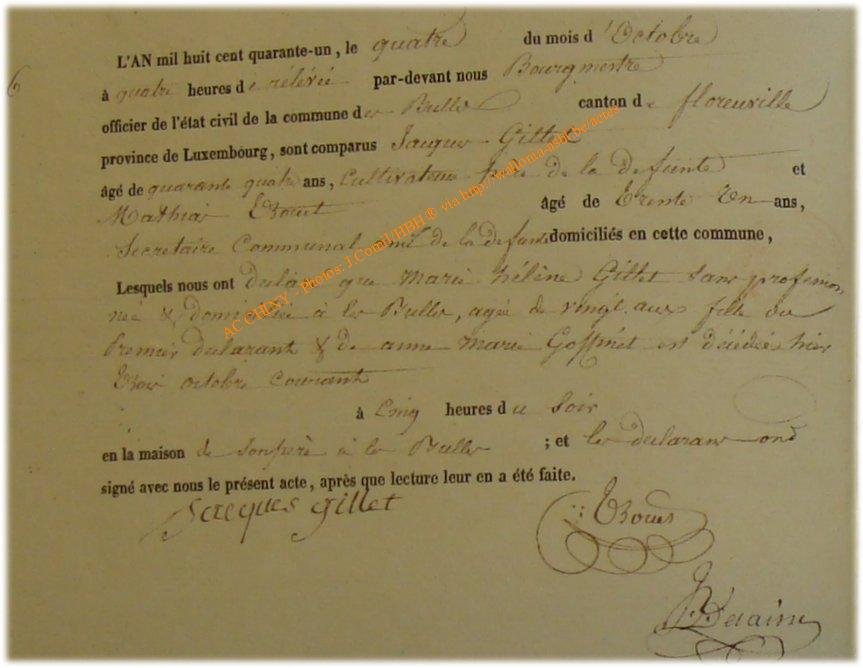 6
L'AN mil huit cent quarante-un, le quatre du mois d'Octobre
à quatre heures de rélévée par-devant nous Bourgmestre
officier de l'état civil de la commune de les Bulles canton de florenville
province de Luxembourg, sont comparus Jacques Gillet
âgé de quarante quatre ans, Cultivateur père de la defunte et
Mathias âgé de trente un ans,
Secretaire Communal ami de la defunte domiciliés en cette commune,
Lesquels nous ont déclaré que marie hélène Gillet sans profession
née & domiciliée à les Bulles, agée de vingt ans fille du
premier declarant & de anne marie Goffinet est décédée hier
trois octobre courant
à Cinq heures du soir
en la maison de son père à les Bulles ; et les declarans ont
signé avec nous le présent acte, après que lecture leur en a été faite.
Jacques gillet
AC CHINY - photos: J.Comi HBH ® via http://walloma-asbl.be/actes